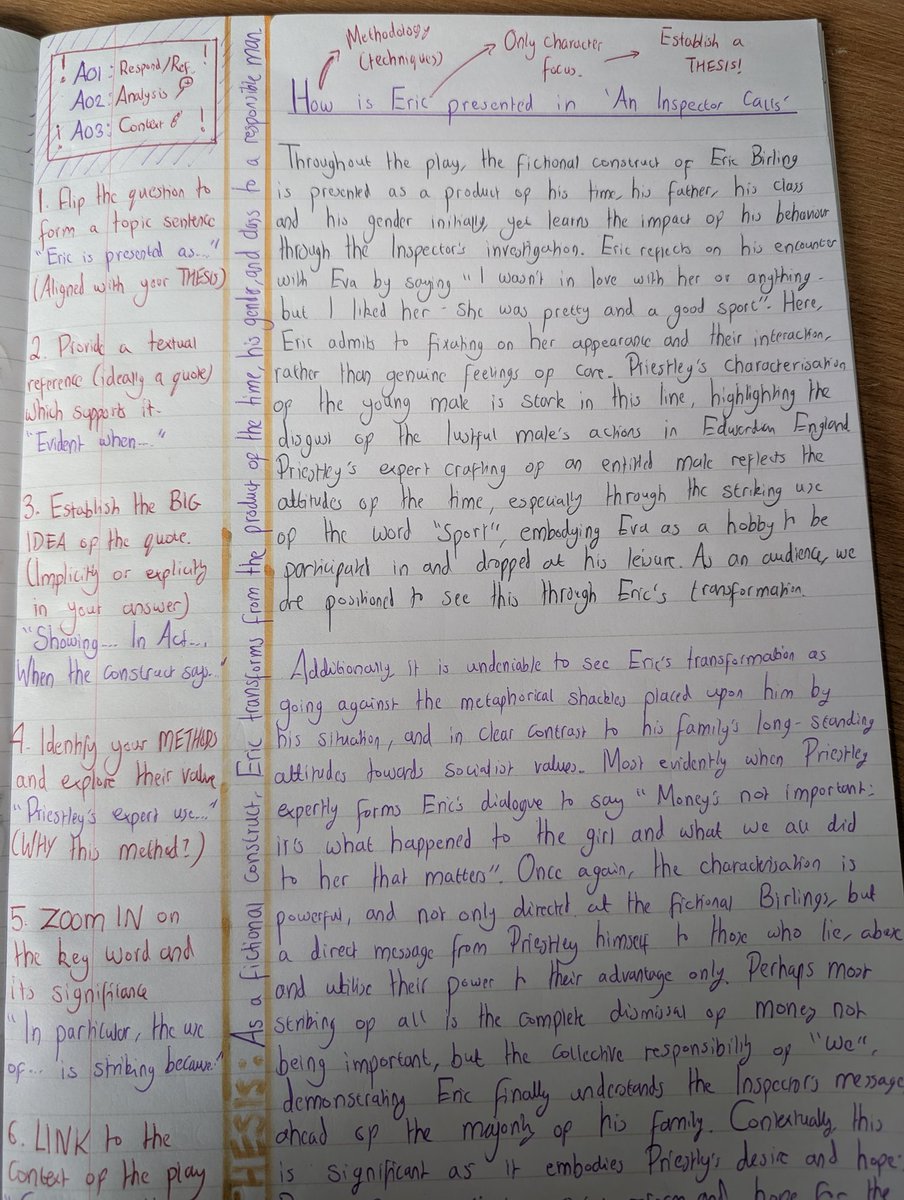 ! AO1: Respond/Ref. !
AO2: Analysis
! AO3: Context !
1. Flip the question to
form a topic sentence
"Eric is presented as..."
(Aligned with your THESIS)
2. Provide a textual
reference (ideally a quote)
which supports it.
"Evident when..."
3. Establish the BIG
IDEA of the quote.
(Implicitly or explicitly
in your answer)
"Showing... In Act...
When the construct says..."
4. Identify your METHODS
and explore their value
"Priestley's expert use..."
(WHY this method?)
5. ZOOM IN on
the key word and
its significance
"In particular, the use
of... is striking because"
6. LINK to the
context of the play
THESIS: As a fictional construct, Eric transforms from the product of the time, his gender, and class to a responsible man
Methodology
(techniques)
Only character
focus.
Establish a
THESIS!
How is Eric presented in 'An Inspector Calls'
Throughout the play, the fictional construct of Eric Birling
is presented as a product of his time, his father, his class
and his gender initially, yet learns the impact of his behaviour
through the Inspector's investigation. Eric reflects on his encounter
with Eva by saying "I wasn't in love with her or anything -
but I liked her - she was pretty and a good sport". Here,
Eric admits to fixating on her appearance and their interaction,
rather than genuine feelings of care. Priestley's characterisation
of the young male is stark in this line, highlighting the
disgust of the lustful male's actions in Edwardian England
Priestley's expert crafting of an entitled male reflects the
attitudes of the time, especially through the striking use
of the word "Sport", embodying Eva as a hobby to be
participated in and dropped at his leisure. As an audience, we
are positioned to see this through Eric's transformation.
Additionally it is undeniable to see Eric's transformation as
going against the metaphorical shackles placed upon him by
his situation, and in clear contrast to his family's long-standing
attitudes towards socialist values. Most evidently when Priestley
expertly forms Eric's dialogue to say "Money's not important:
it's what happened to the girl and what we all did
to her that matters". Once again, the characterisation is
powerful, and not only directed at the fictional Birlings, but
a direct message from Priestley himself to those who lie, abuse
and utilise their power to their advantage only. Perhaps most
striking of all is the complete dismissal of money not
being important, but the collective responsibility of "we",
demonstrating Eric finally understands the Inspector's message
ahead of the majority of his family. Contextually, this
is significant as it embodies Priestley's desire and hope
and hope for the